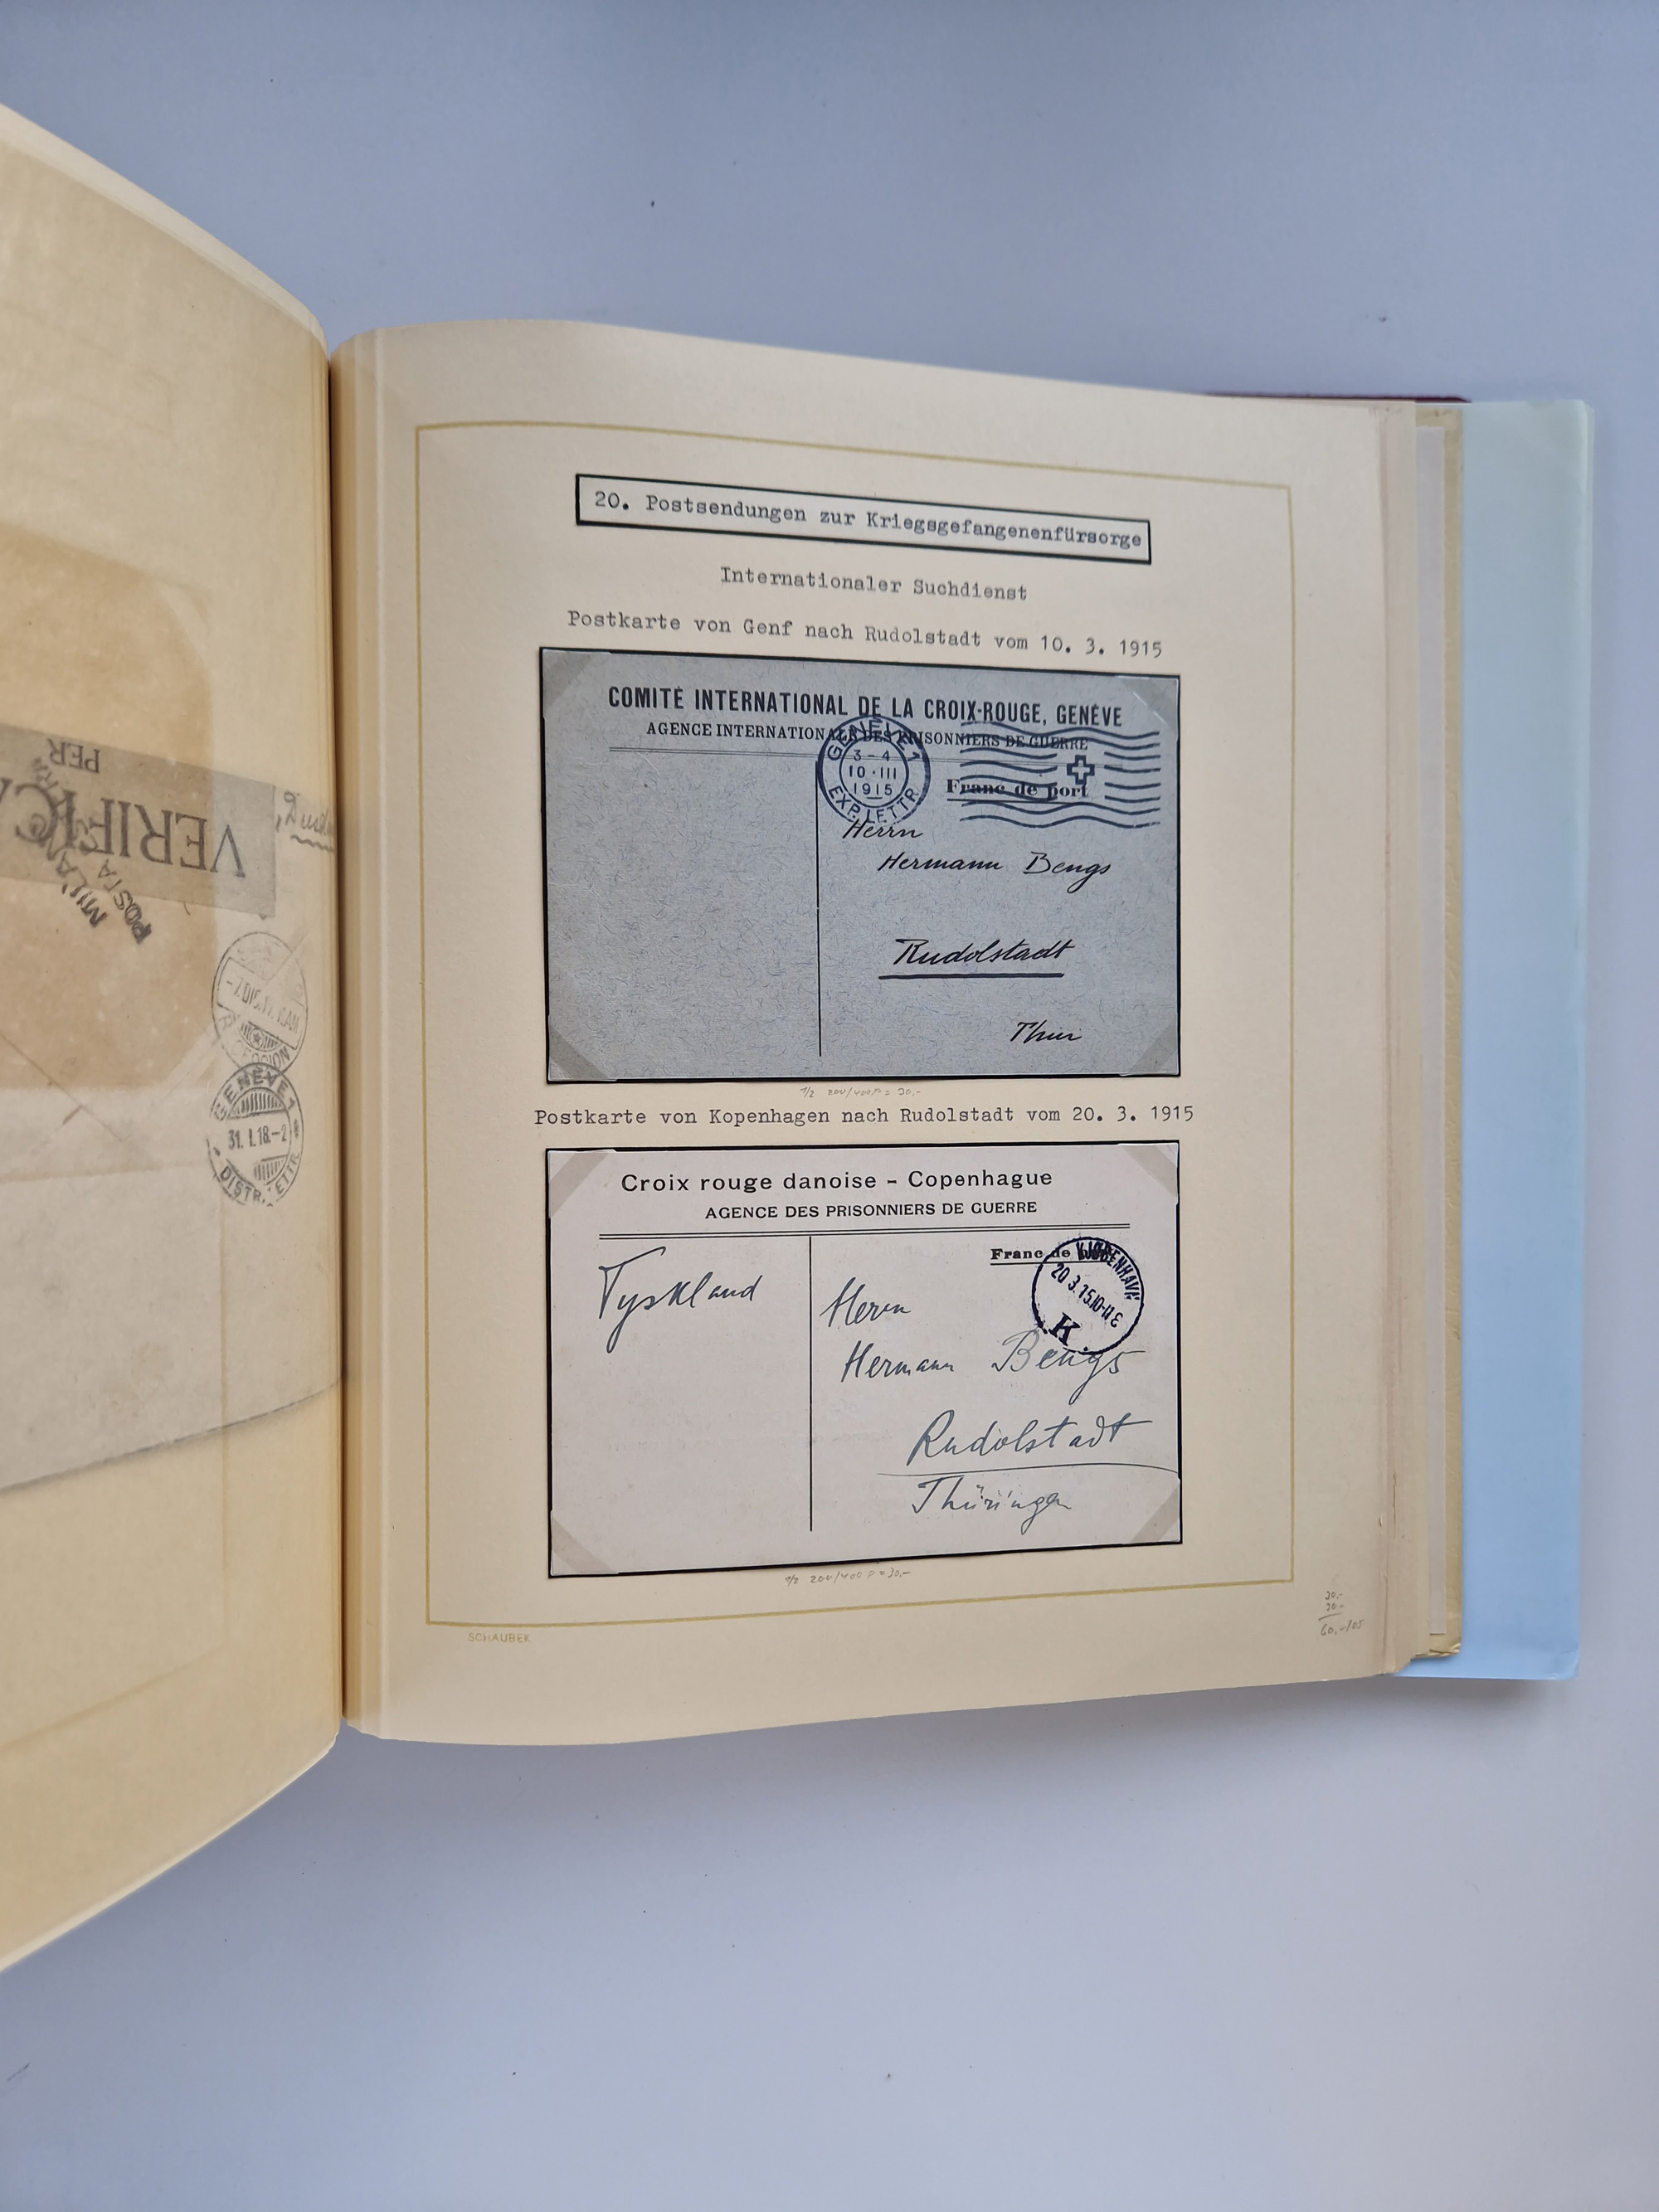 PER
VERIFICA
MILANO
POSTA
GENÈVE 1
31.I.18.-2
DISTR. LETTR.
20. Postsendungen zur Kriegsgefangenenfürsorge
Internationaler Suchdienst
Postkarte von Genf nach Rudolstadt vom 10. 3. 1915
COMITÉ INTERNATIONAL DE LA CROIX-ROUGE, GENÈVE
AGENCE INTERNATIONALE DES PRISONNIERS DE GUERRE
GENÈVE 1
3-4
10·III
1915
EXP. LETTR.
Franc de port
Herrn
Hermann Bengs
Rudolstadt
Thür
1/2 200/400 P = 30.-
Postkarte von Kopenhagen nach Rudolstadt vom 20. 3. 1915
Croix rouge danoise - Copenhague
AGENCE DES PRISONNIERS DE GUERRE
Franc de port
KJØBENHAVN
20.3.15.10-11 E
K.
Tyskland
Herrn
Hermann Bengs
Rudolstadt
Thüringen
1/2 200/400 P = 30.-
30.-
30.-
60.-/105
SCHAUBEK